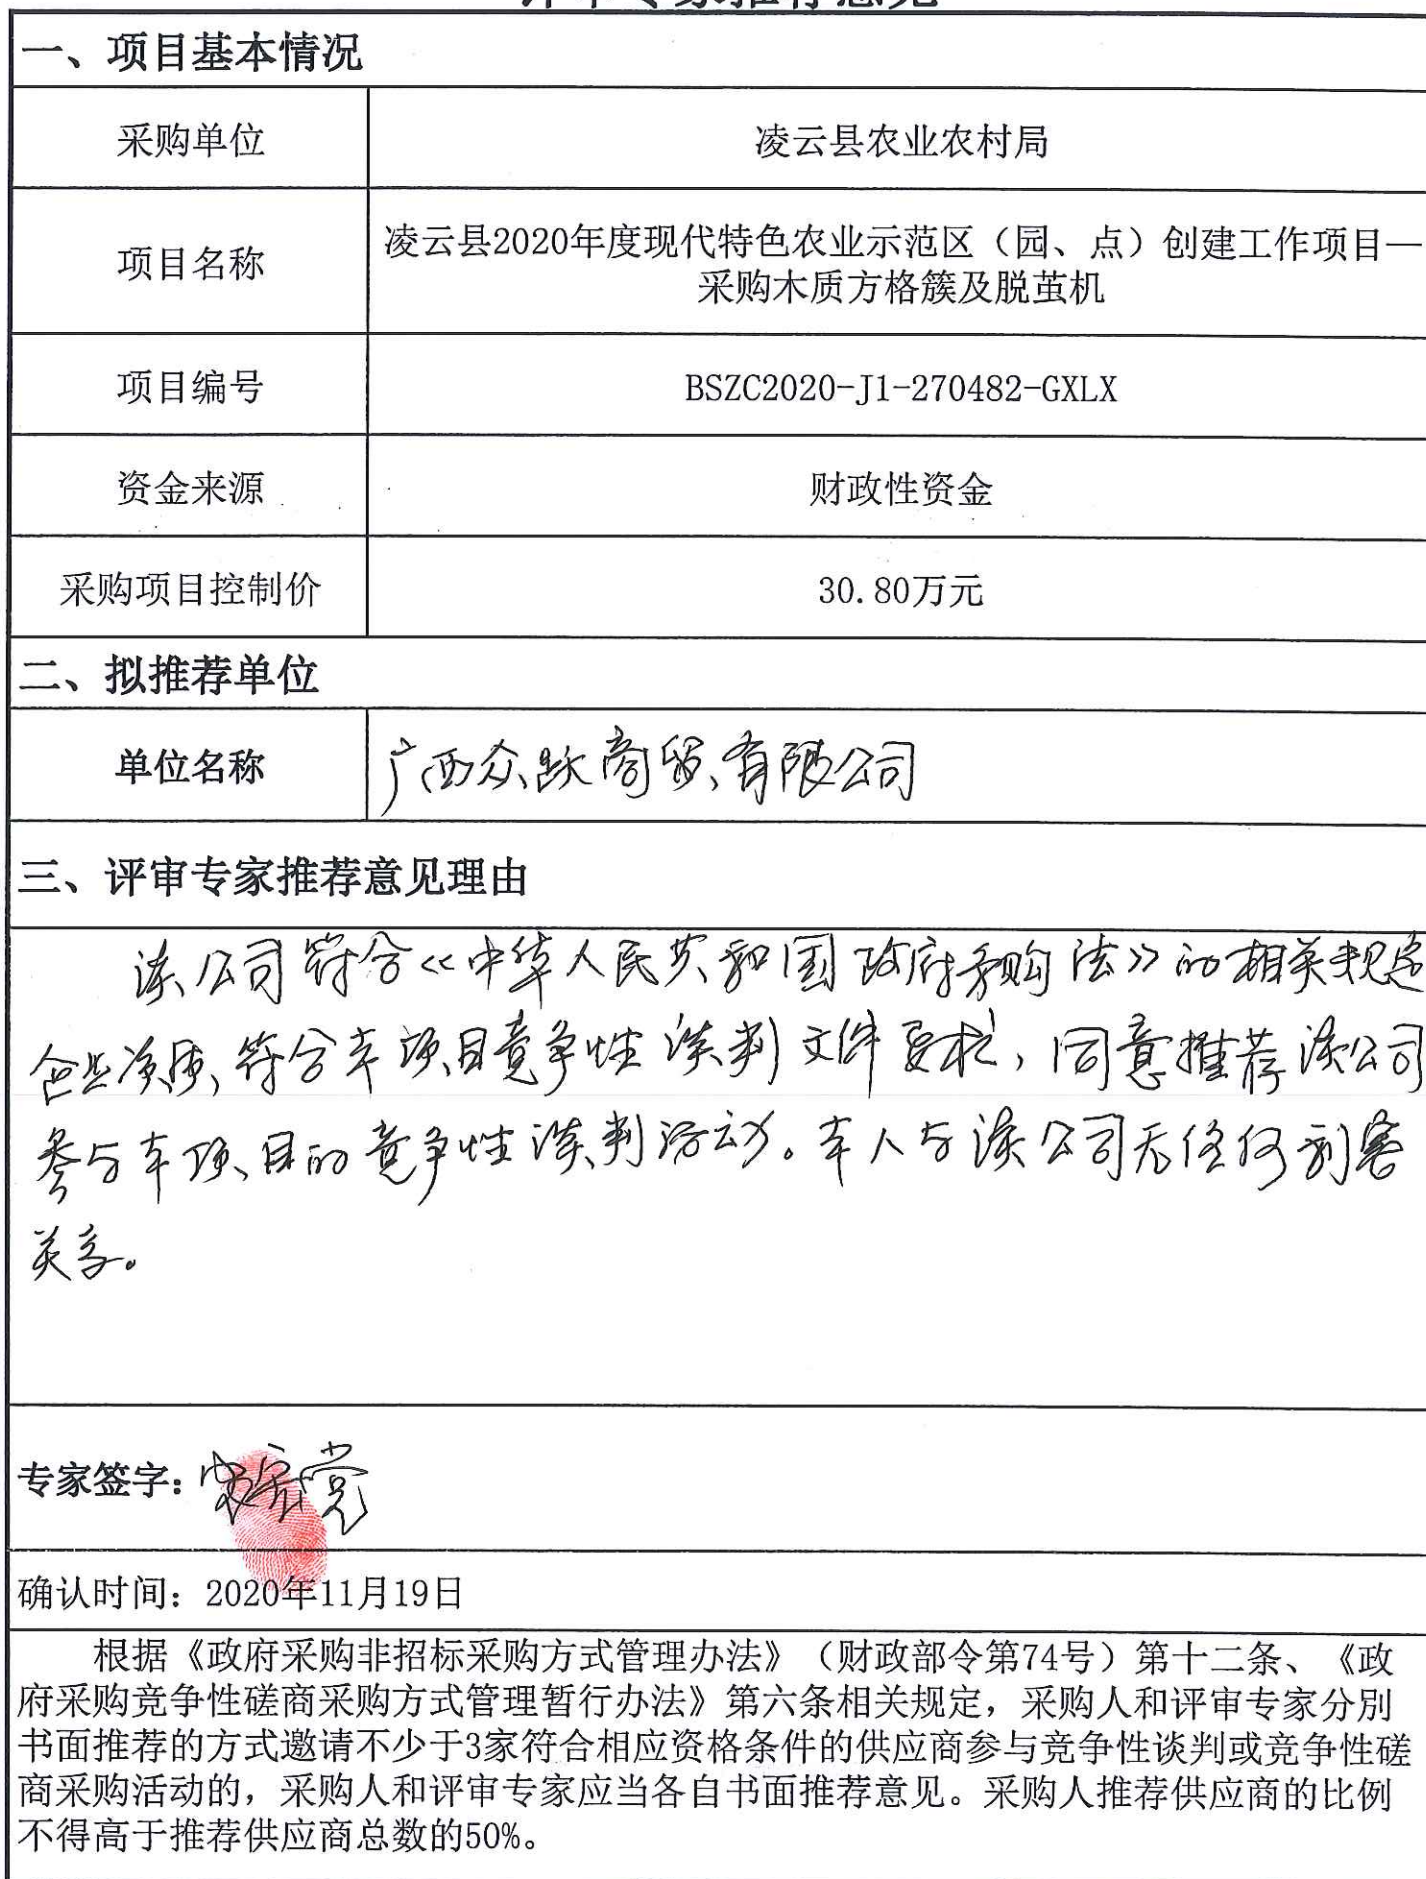 评审专家推荐意见
一、项目基本情况
采购单位
凌云县农业农村局
项目名称
凌云县2020年度现代特色农业示范区（园、点）创建工作项目—
采购木质方格簇及脱茧机
项目编号
BSZC2020-J1-270482-GXLX
资金来源
财政性资金
采购项目控制价
30.80万元
二、拟推荐单位
单位名称
广西众跃商贸有限公司
三、评审专家推荐意见理由
该公司符合《中华人民共和国政府采购法》的相关规定
企业资质符合本项目竞争性谈判文件要求，同意推荐该公司
参与本项目的竞争性谈判活动。本人与该公司无任何利害
关系。
专家签字：
确认时间：2020年11月19日
根据《政府采购非招标采购方式管理办法》（财政部令第74号）第十二条、《政
府采购竞争性磋商采购方式管理暂行办法》第六条相关规定，采购人和评审专家分别
书面推荐的方式邀请不少于3家符合相应资格条件的供应商参与竞争性谈判或竞争性磋
商采购活动的，采购人和评审专家应当各自书面推荐意见。采购人推荐供应商的比例
不得高于推荐供应商总数的50%。